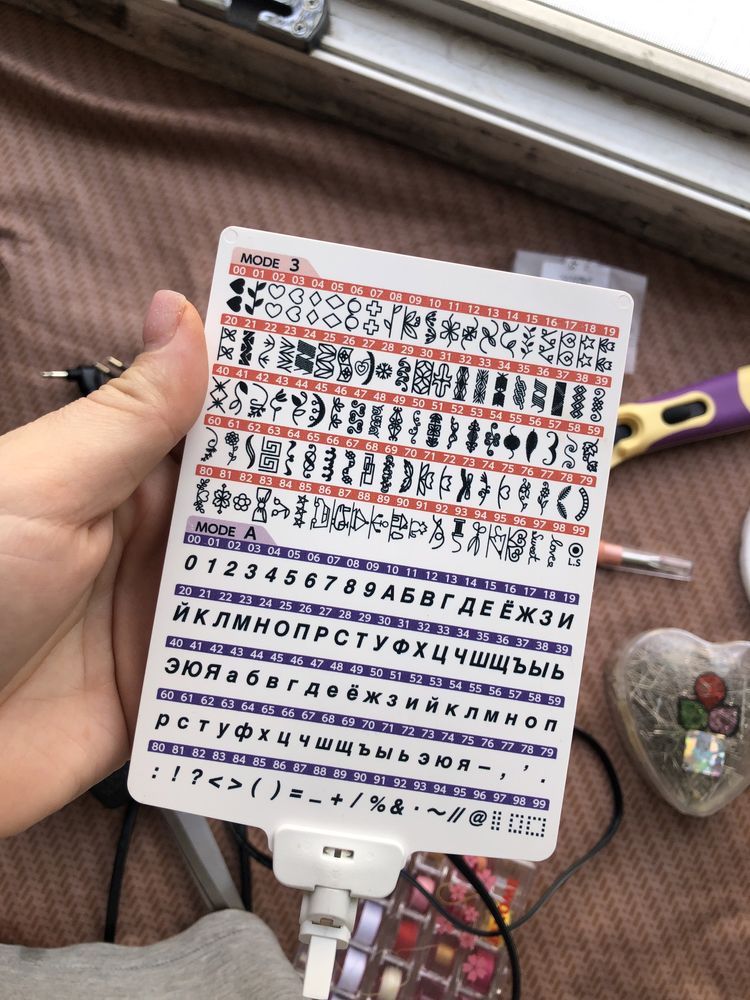 MODE 3
00 01 02 03 04 05 06 07 08 09 10 11 12 13 14 15 16 17 18 19
20 21 22 23 24 25 26 27 28 29 30 31 32 33 34 35 36 37 38 39
40 41 42 43 44 45 46 47 48 49 50 51 52 53 54 55 56 57 58 59
60 61 62 63 64 65 66 67 68 69 70 71 72 73 74 75 76 77 78 79
80 81 82 83 84 85 86 87 88 89 90 91 92 93 94 95 96 97 98 99
Sweet love LS
MODE A
00 01 02 03 04 05 06 07 08 09 10 11 12 13 14 15 16 17 18 19
0 1 2 3 4 5 6 7 8 9 А Б В Г Д Е Ё Ж З И
20 21 22 23 24 25 26 27 28 29 30 31 32 33 34 35 36 37 38 39
Й К Л М Н О П Р С Т У Ф Х Ц Ч Ш Щ Ъ Ы Ь
40 41 42 43 44 45 46 47 48 49 50 51 52 53 54 55 56 57 58 59
Э Ю Я а б в г д е ё ж з и й к л м н о п
60 61 62 63 64 65 66 67 68 69 70 71 72 73 74 75 76 77 78 79
р с т у ф х ц ч ш щ ъ ы ь э ю я – , ' .
80 81 82 83 84 85 86 87 88 89 90 91 92 93 94 95 96 97 98 99
: ! ? < > ( ) = _ + / % & · ~ // @